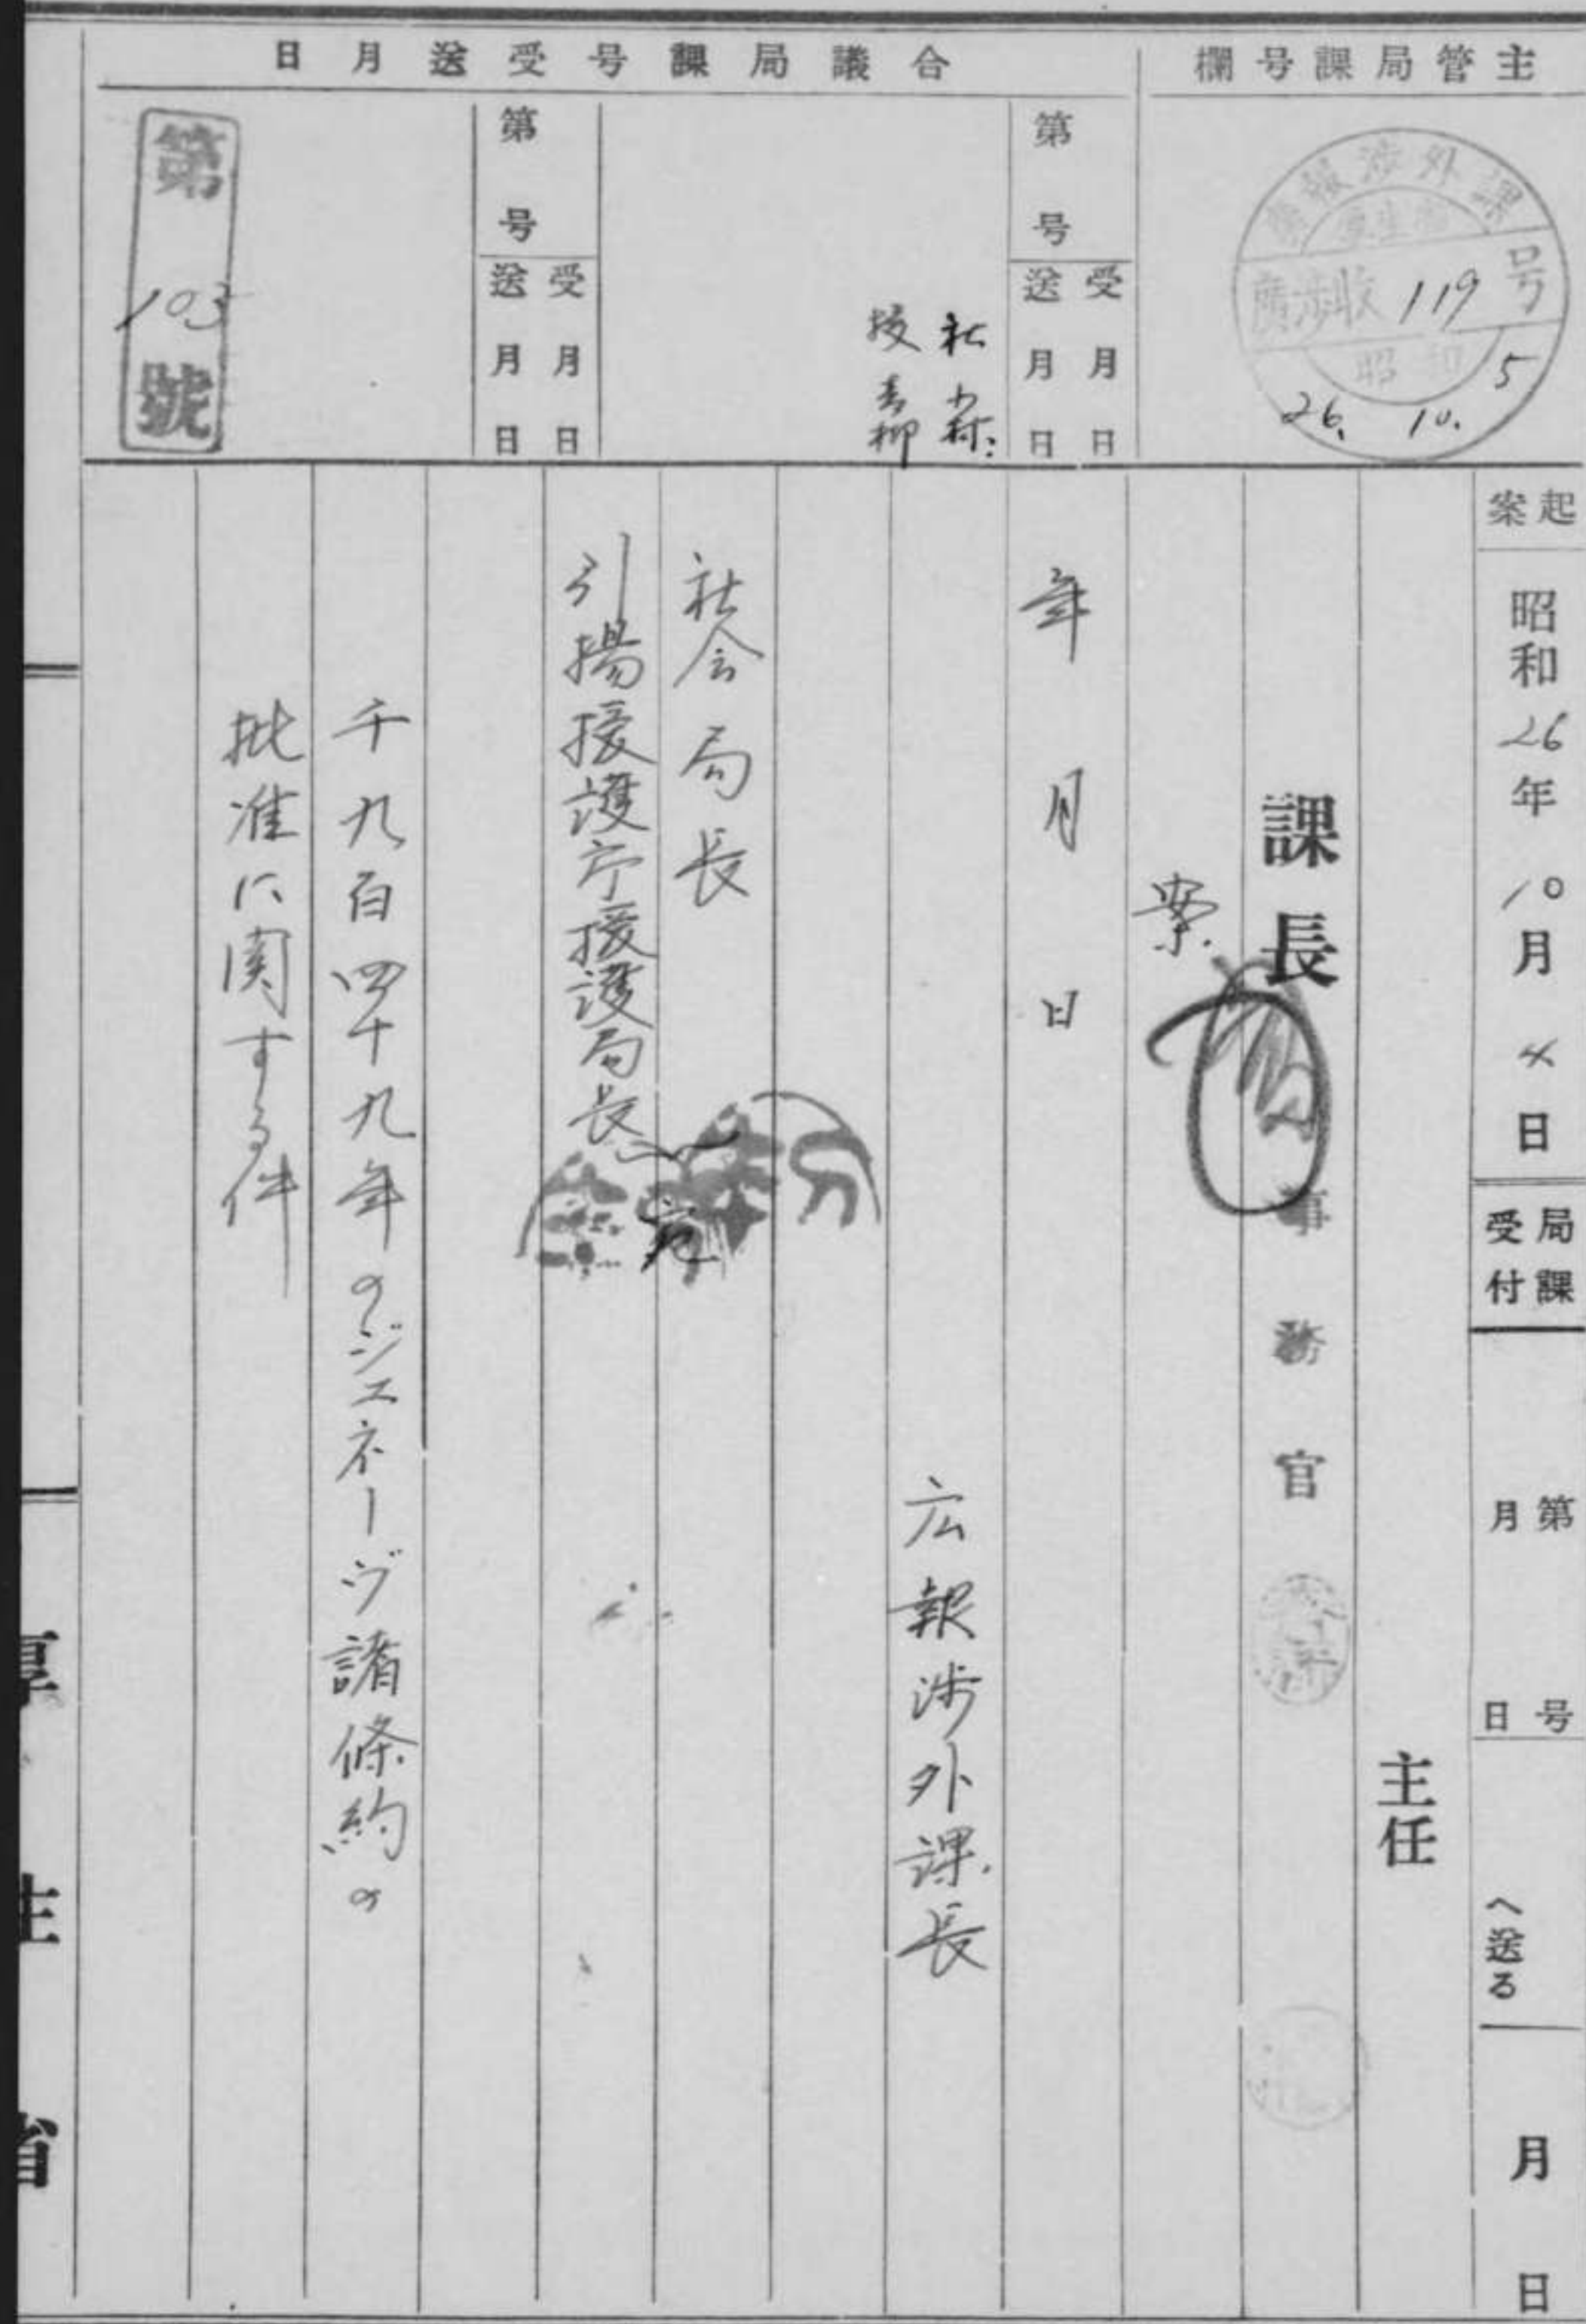 主管局課号欄
合議局課号受送月日
廣報渉外課
厚生省
廣渉收119号
昭和
26. 10. 5
第 号
受 月 日
送 月 日
社 小村
援 青柳
第 号
受 月 日
送 月 日
第103號
起案 昭和26年10月4日
局課受付
第 号
月 日
へ送る
月 日
主任
課長
事務官
案
年 月 日
広報渉外課長
社会局長
引揚援護庁援護局長
宛
千九百四十九年のジエネーヴ諸條約の
批准に関する件
厚生省